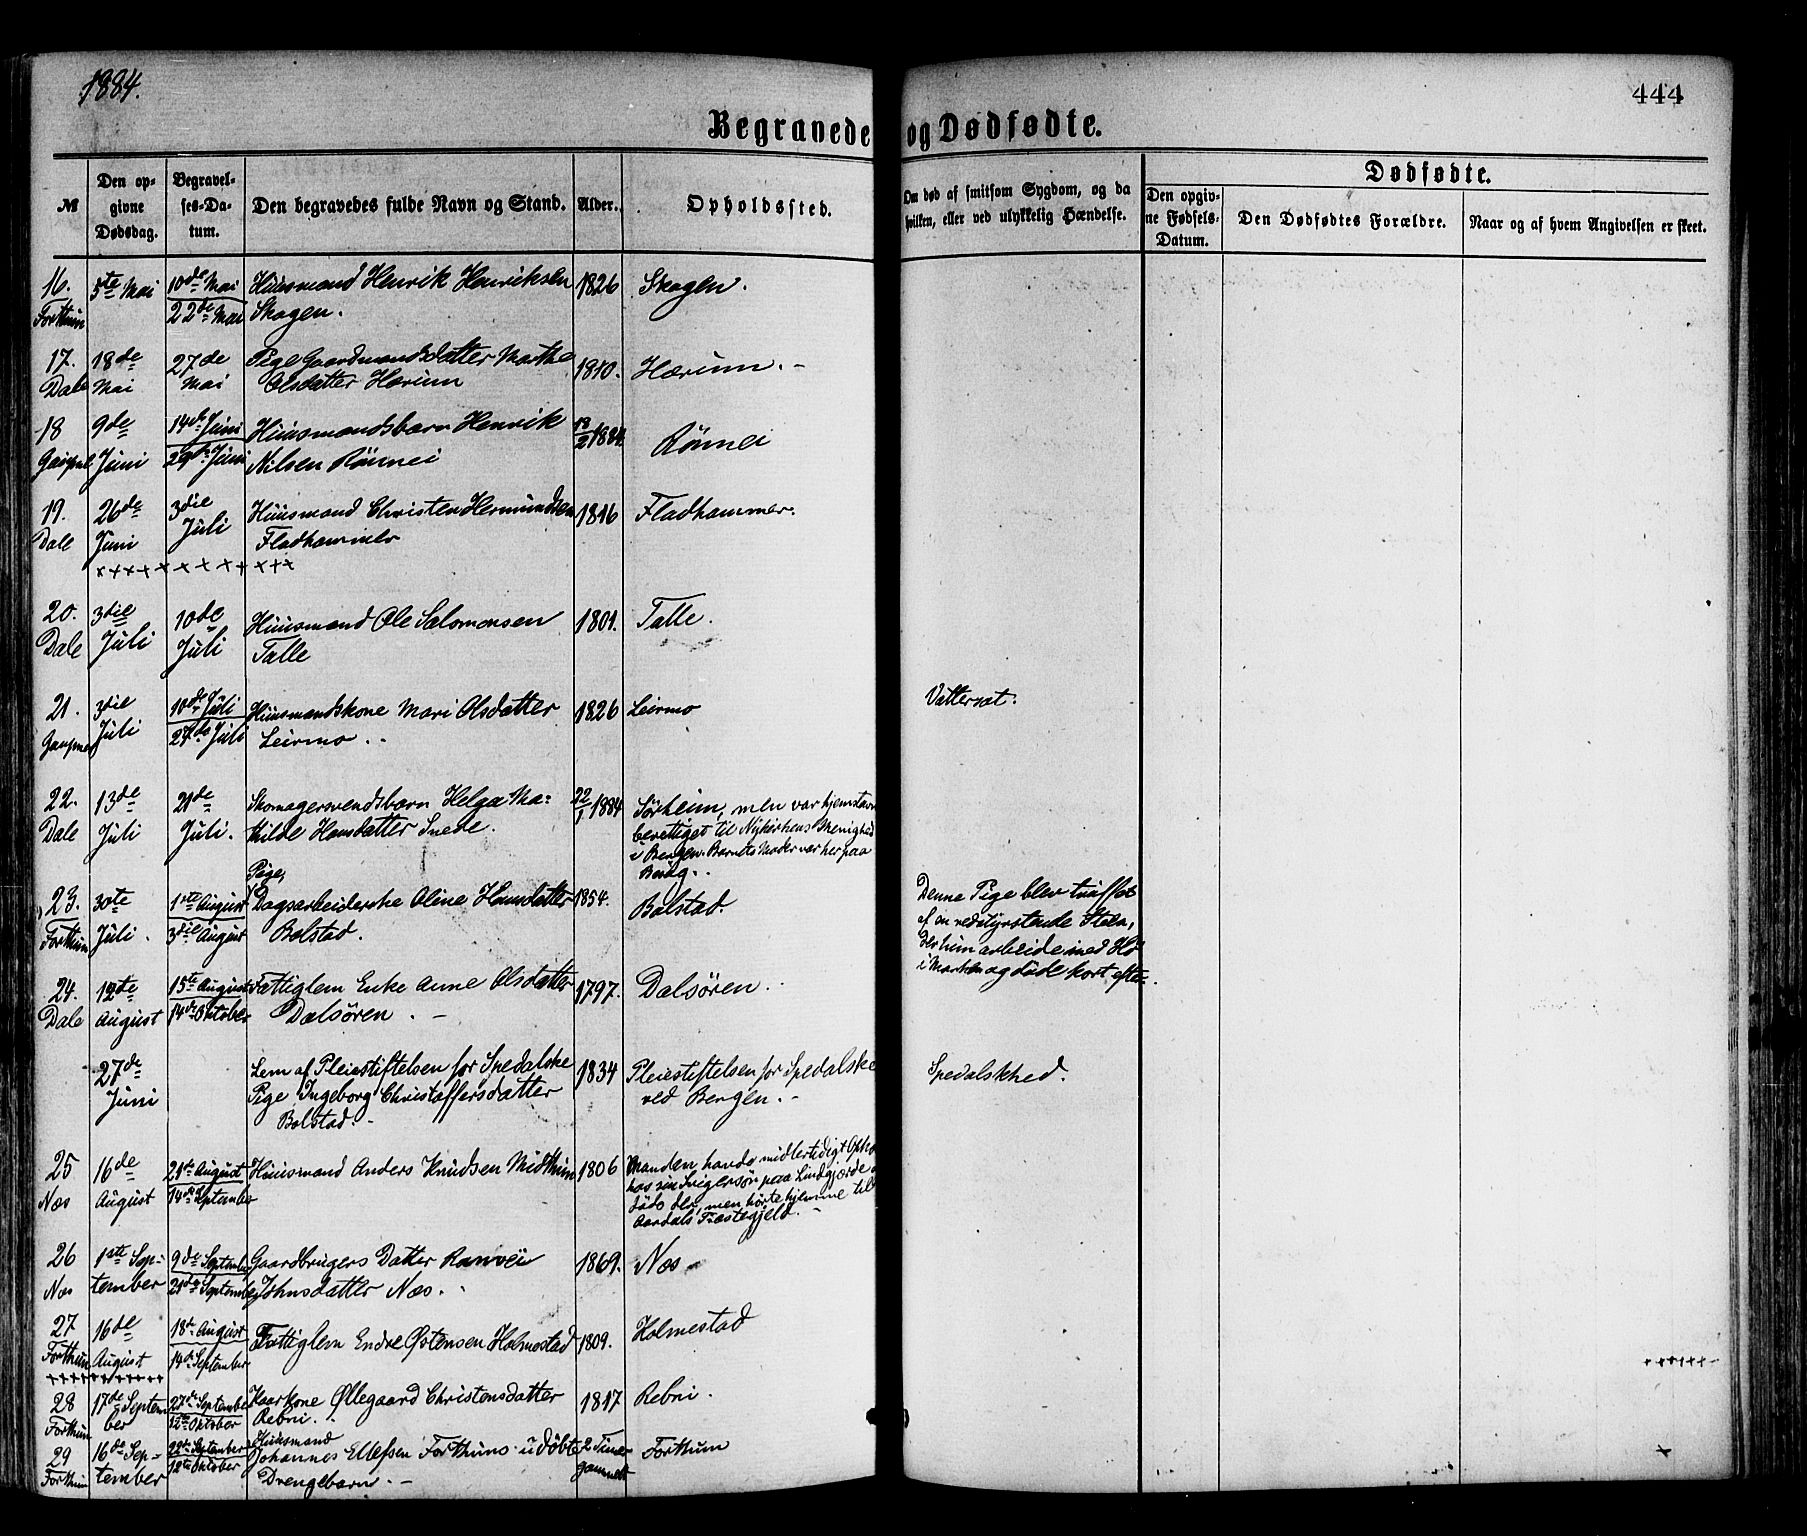 1884.
444
Begravede og Dødfødte.
№
Den opgivne Dødsdag.
Begravelses-Datum.
Den begravedes fulde Navn og Stand.
Alder.
Opholdssted.
Om død af smitsom Sygdom, og da hvilken, eller ved ulykkelig Hændelse.
Dødfødte.
Den opgivne Fødsels-Datum.
Den Dødfødtes Forældre.
Naar og af hvem Angivelsen er skeet.
16. 5te Mai 10de Mai Huusmand Henrik Henriksen 1826 Skagen.
Forthun 22de Mai Skagen.
17. 18de 27de Pige Gaardmandsdatter Marthe 1810. Hærum. -
Dale Mai Mai Olsdatter Hærum
18 9de 14de Juni Huusmandsbarn Henrik 18/2 1884. Rönnei
Gaupne Juni 29de Juni Nilsen Rönnei
19. 26de 3die Huusmand Christen Hermundsen 1816 Fladhammer.
Dale Juni Juli Fladhammer
20. 3die 10de Huusmand Ole Salomonsen 1801. Talle.
Dale Juli Juli Talle
21. 3die 10de Juli Huusmandskone Mari Olsdatter 1826 Leirmo Vattersot.
Gaupne Juli 27de Juli Leirmo.
22. 13de 21de Skomagersvendsbarn Helga Ma- 22/1 1884 Sørheim, men var hjemstavns
Dale Juli Juli. thilde Hansdatter Snede. berettiget til Nykirkens Menighed
i Bergen. Barnets Moder var her paa
Besög.
Pige,
23. 30te 1ste August Dagsarbeiderske Oline Hansdatter 1854. Bolstad. Denne Pige blev truffet
Forthun Juli. 3die August Bolstad. af en nedstyrtende Steen,
der hun arbeidede med Hö
i Marken og døde kort efter.
24. 12te 15te August Fattiglem Enke Anne Olsdatter 1797. Dalsören.
Dale August 14de Oktober Dalsören. -
27de Lem af Pleiestiftelsen for Spedalske 1834 Pleiestiftelsen for Spedalske Spedalskhed.
Juni Pige Ingeborg Christoffersdatter ved Bergen. -
Bolstad.
25 16de 21de August Huusmand Anders Knudsen Midthun 1806 Manden havde midlertidigt Opho
Næs August 14de September hos sin Svigersön paa Lindgjerde
døde der, men hörte hjemme til
Aardals Præstegjeld. -
26 1ste Sep- 9de September Gaardbrugers Datter Ranvei 1869. Næs
Næs tember 21de September Johnsdatter Næs.
27 16de 18de August Fattiglem Endre Østensen Holmestad 1809. Holmestad
Forthun August 14de September
28 17de Septem 27de September Kaarkone Øllegaard Christensdatter 1817 Rebni.
Forthun ber 12te Oktober Rebni.
Huusmand
29 16de Sep- 22de September Johannes Ellefsen Forthuns udøbte 2 Timer Forthum
Forthun tember 12te Oktober Drengebarn. - gammelt